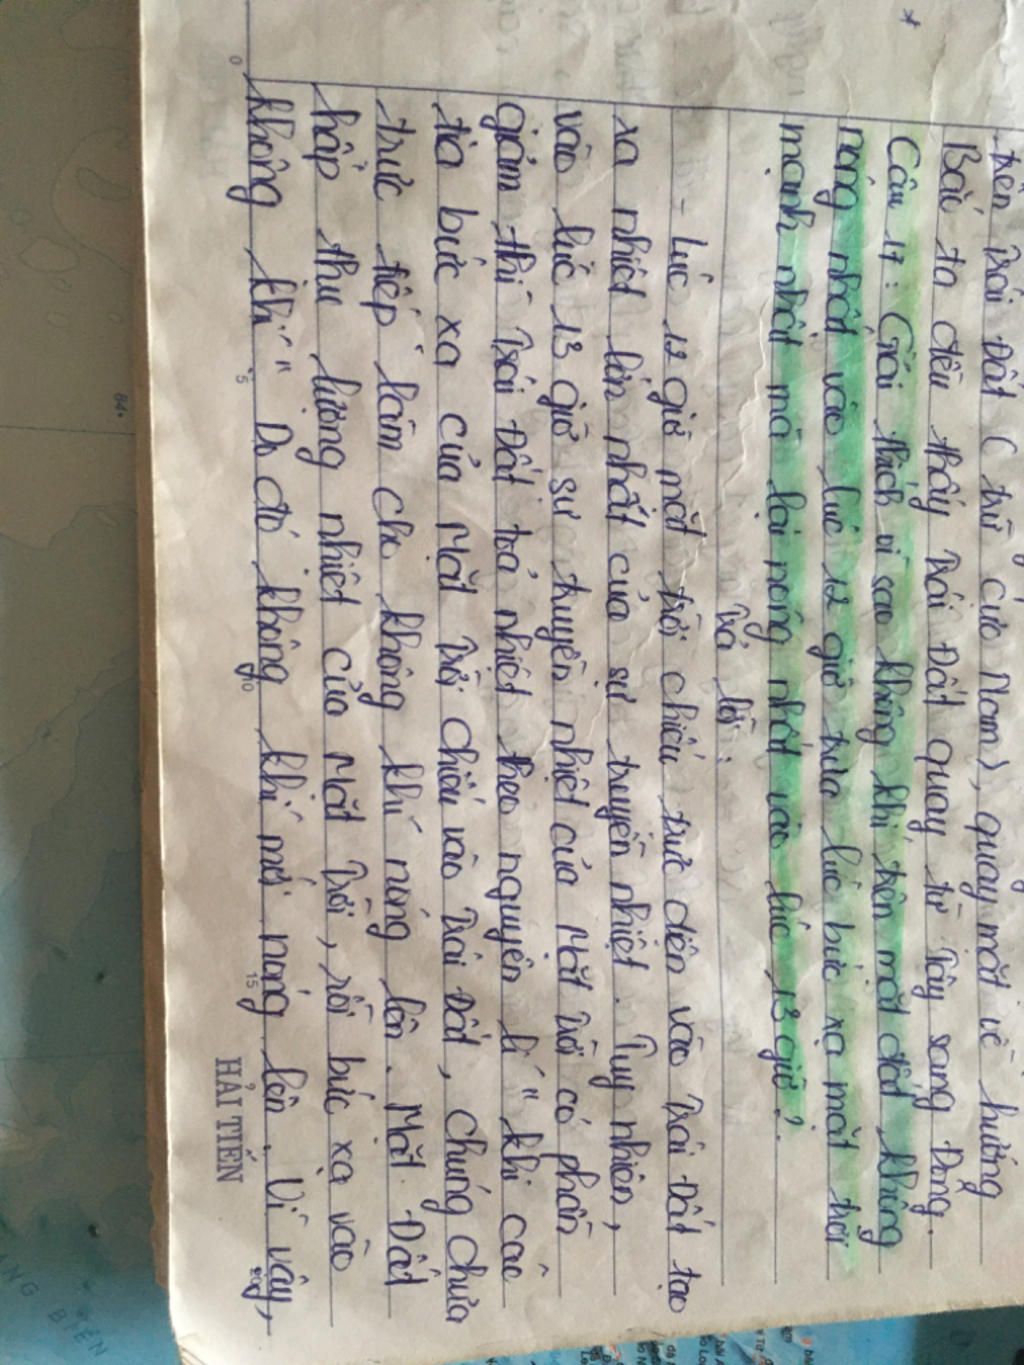 trên Trái Đất (trừ cực Nam), quay mặt về hướng
Bắc ta đều thấy Trái Đất quay từ Tây sang Đông.
Câu 17: Giải thích vì sao không khí trên mặt đất không
nóng nhất vào lúc 12 giờ trưa lúc bức xạ mặt trời
mạnh nhất mà lại nóng nhất vào lúc 13 giờ?
Trả lời:
- Lúc 12 giờ mặt trời chiếu trực đến vào Trái Đất tạo
ra nhiệt lớn nhất của sự truyền nhiệt. Tuy nhiên,
vào lúc 13 giờ sự truyền nhiệt của Mặt Trời có phần
giảm thì Trái Đất toả nhiệt theo nguyên lí " khi các
tia bức xạ của Mặt Trời chiếu vào Trái Đất, chúng chưa
trực tiếp làm cho không khí nóng lên. Mặt Đất
hấp thu lượng nhiệt của Mặt Trời, rồi bức xạ vào
không khí" Do đó không khí mới nóng lên. Vì vậy,
0 5 10 15
HẢI TIẾN
64